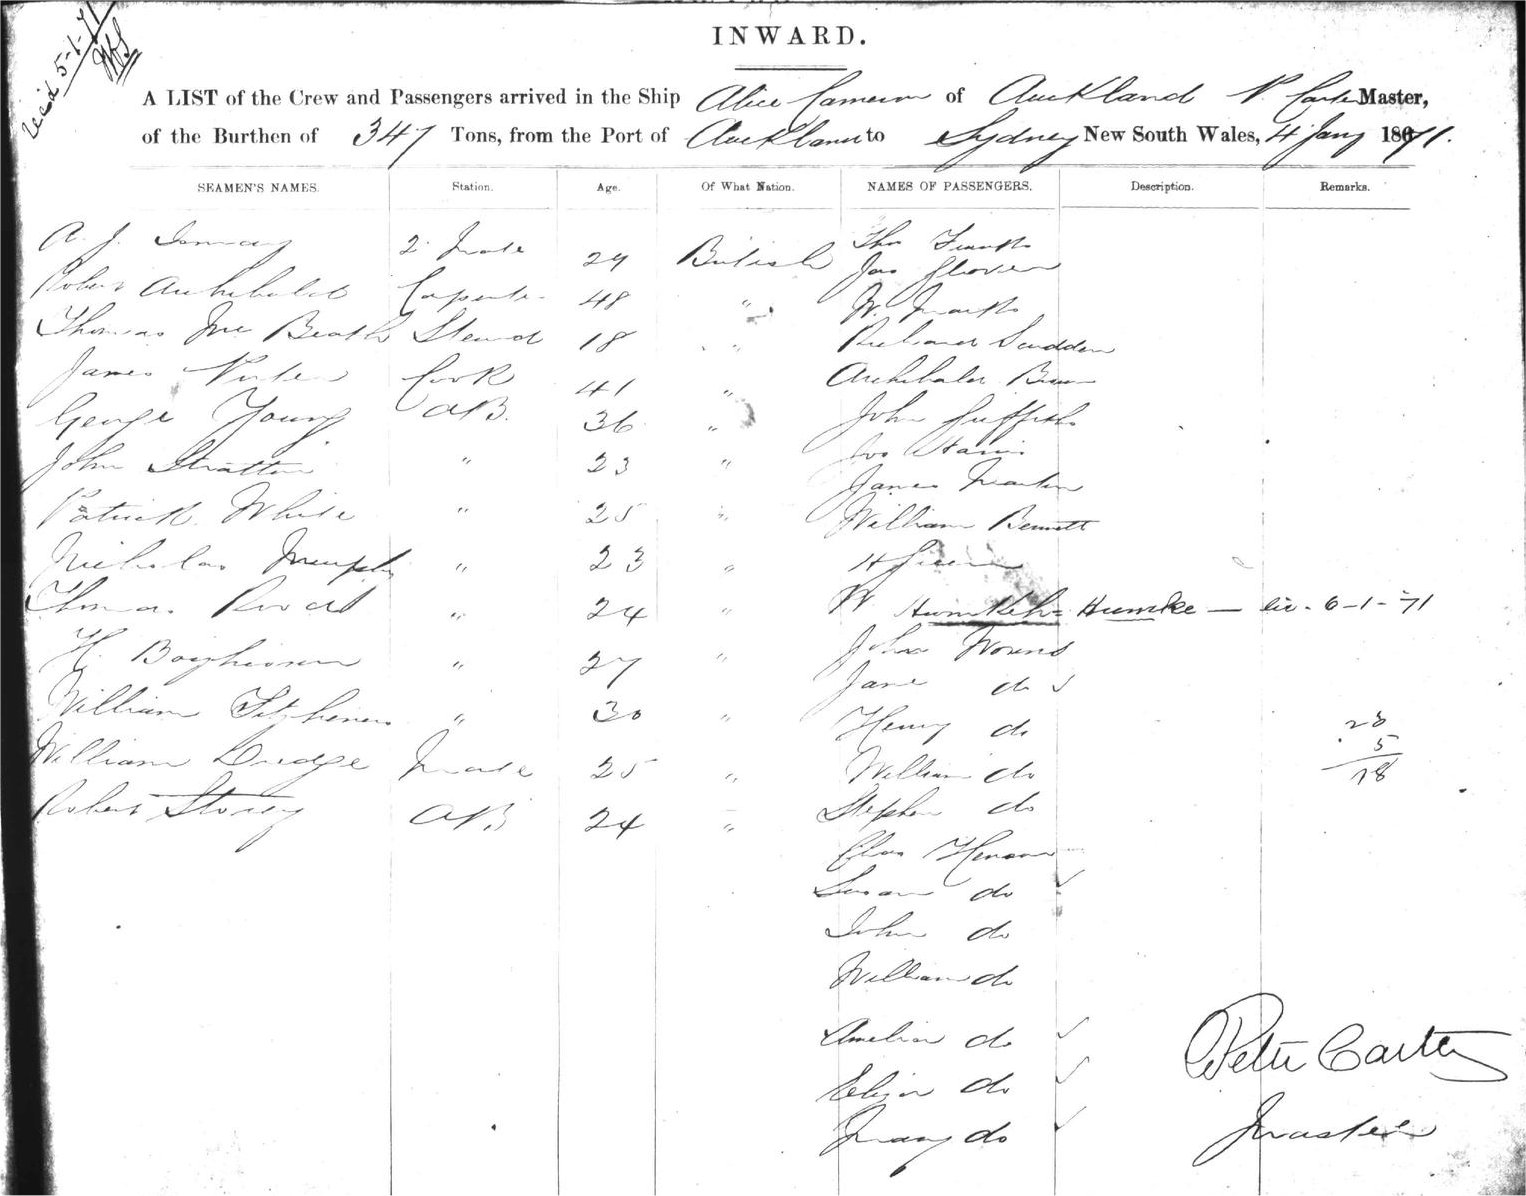 INWARD.
rec'd 5-1-71
A LIST of the Crew and Passengers arrived in the Ship Alice Cameron of Auckland P. Carter Master,
of the Burthen of 347 Tons, from the Port of Auckland to Sydney New South Wales, 4 Jany 1871.
SEAMEN'S NAMES. Station. Age. Of What Nation. NAMES OF PASSENGERS. Description. Remarks.
A. J. 2 Mate 29 British Thos
Jas Glover
Robert Archibald Carpenter 48 " W. Marks
Thomas Mc Beath Steward 18 " Richard Scudden
James Cook 41 " Archibald Brown
George Young AB. 36 " John Griffiths
John Stratton " 23 " Jos Harris
James Martin
Patrick White " 25 " William Bennett
Nicholas Murphy " 23 " H Green
Thomas " 24 " W Humkeh= Humke — lic. 6-1-71
H. " 27 " John Wornes
Jane do ✓
William " 30 " Henry do 23
5
William Dredge Mate 25 " William do 18
Robert Storey AB 24 " Stephen do
Chas Henson
Susan do ✓
John do
William do
Amelia do ✓
Eliza do ✓
Mary do ✓
Peter Carter
Master